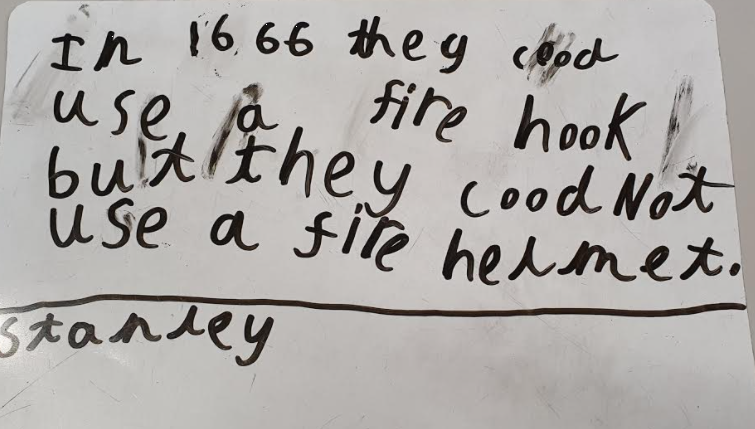 In 1666 they cood
use a fire hook
but they cood Not
use a fire helmet.
Stanley